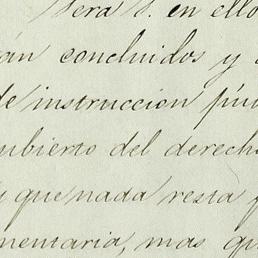 Será S. en ello
án concluidos y
de instruccion pú
ubierto del derech
que nada resta
mentaria, mas qu